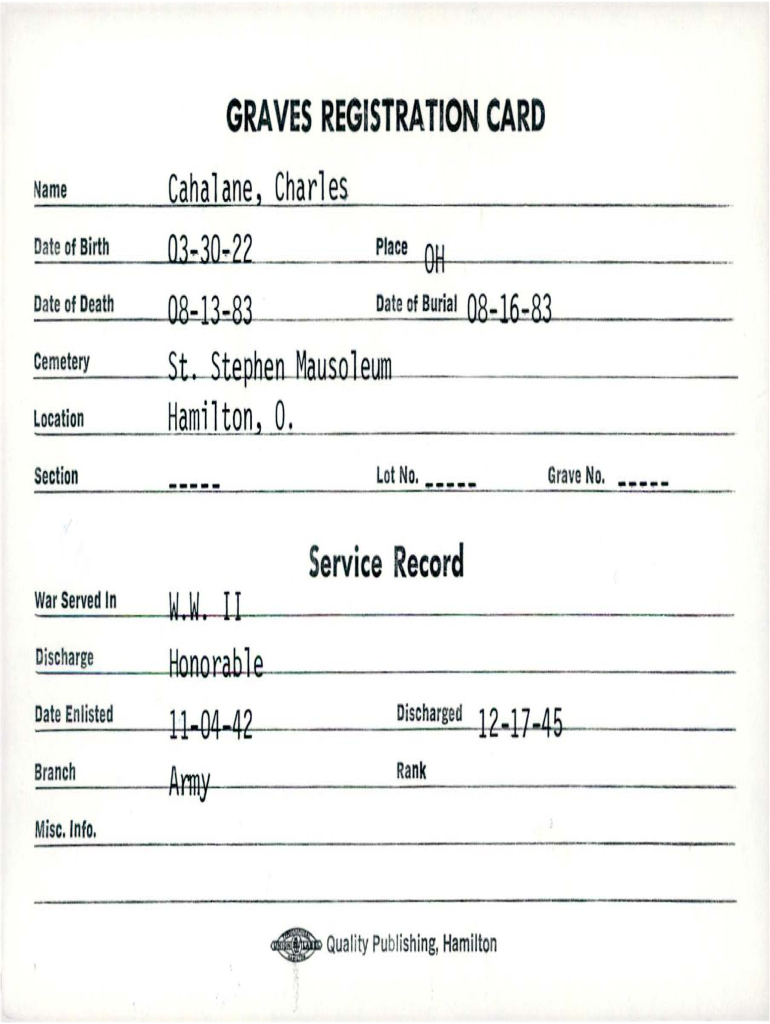 GRAVES REGISTRATION CARD
Name Cahalane, Charles
Date of Birth 03-30-22 Place OH
Date of Death 08-13-83 Date of Burial 08-16-83
Cemetery St. Stephen Mausoleum
Location Hamilton, O.
Section ----- Lot No. ----- Grave No. -----
Service Record
War Served In W.W. II
Discharge Honorable
Date Enlisted 11-04-42 Discharged 12-17-45
Branch Army Rank
Misc. Info.
Quality Publishing, Hamilton